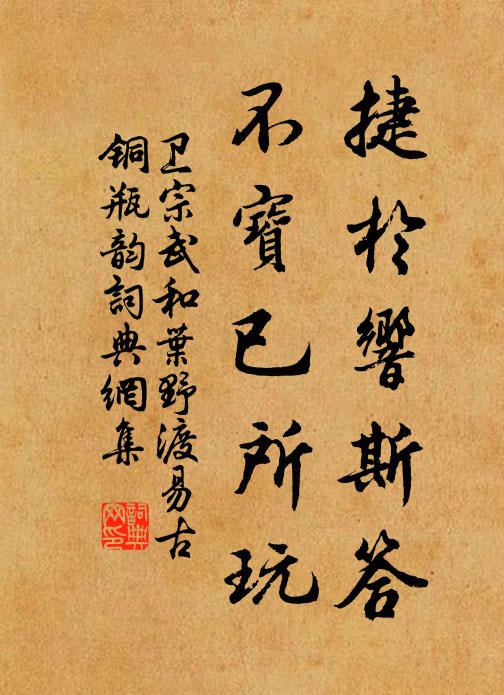 捷於響斯答
不寶已所玩
卫宗武和葉野渡易古
銅瓶韵詞典網集
詞典
网印